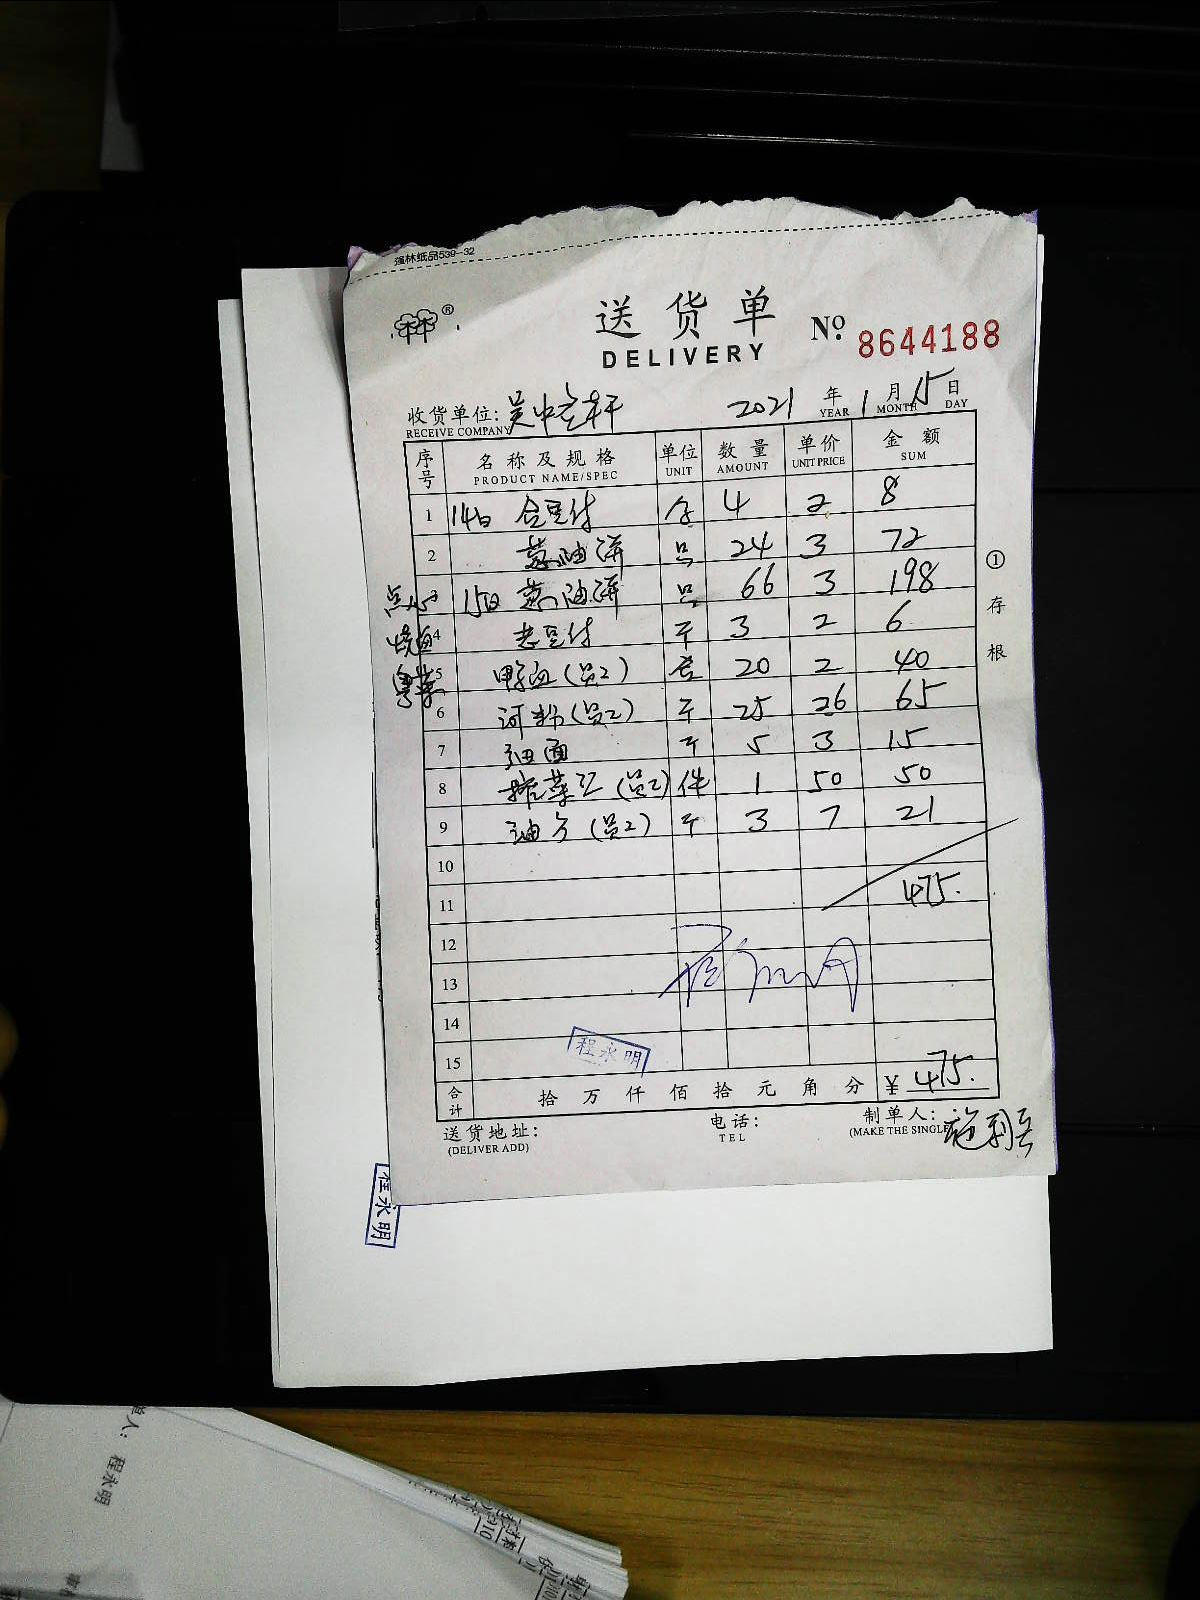 强林纸品539-32
林®
送货单
DELIVERY
№ 8644188
收货单位: 吴中 轩 2021 年 1 月 15 日
RECEIVE COMPANY YEAR MONTH DAY
序号 名称及规格 单位 数量 单价 金额
PRODUCT NAME/SPEC UNIT AMOUNT UNIT PRICE SUM
1 14日 合豆付 合 4 2 8
2 葱油饼 只 24 3 72
点心 3 15日 葱油饼 只 66 3 198
烧白 4 老豆付 斤 3 2 6
粤菜 5 鸭血(员2) 20 2 40
6 河粉(员2) 斤 25 26 65
7 细面 斤 5 3 15
8 榨菜 (员2) 件 1 50 50
9 油 (员2) 斤 3 7 21
10
11 475.
12
13
14
15 程永明
合计 拾 万 仟 佰 拾 元 角 分 ¥ 475.
送货地址: 电话: 制单人: 施利兵
(DELIVER ADD) TEL (MAKE THE SINGLE
① 存根
程永明
单人: 程永明